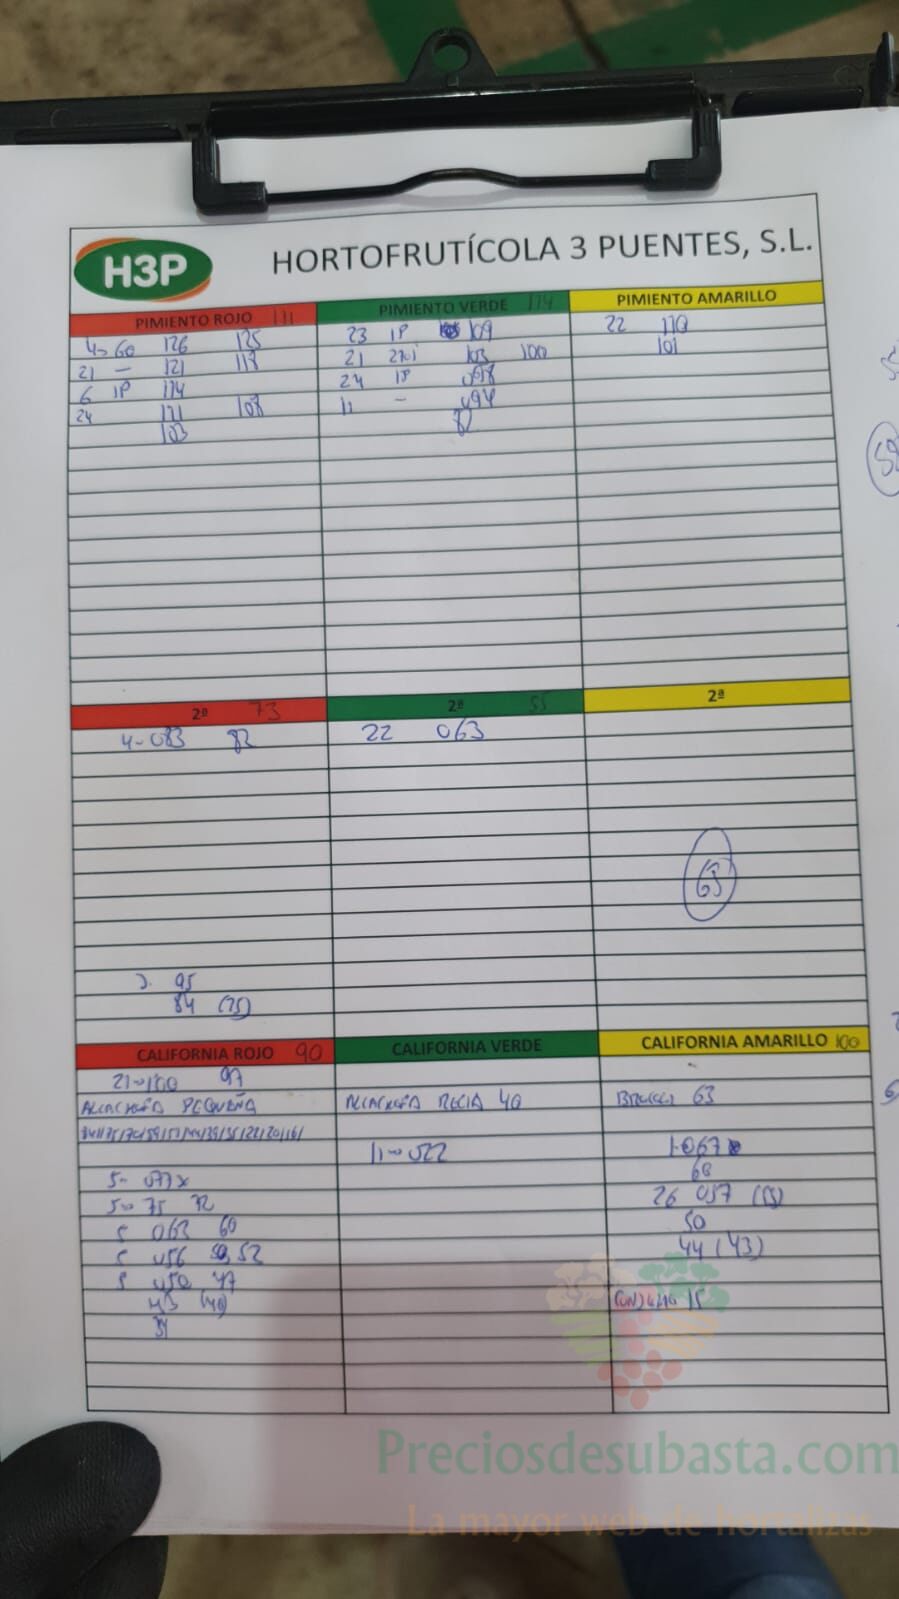 H3P
HORTOFRUTÍCOLA 3 PUENTES, S.L.
PIMIENTO ROJO 111
4-> 60 126 125
21 - 121 118
6 1P 114
24 111 108
103
PIMIENTO VERDE 114
23 1P 109
21 103 100
24 1P 098
11 - 094
82
PIMIENTO AMARILLO
22 110
101
2ª 73
4-083 82
95
84 (75)
2ª 55
22 063
2ª
63
CALIFORNIA ROJO 90
21->100 97
ALCACHOFA PEQUEÑA
5- 077x
5-> 75 72
5 063 60
5 056 52
5 050 47
43 (40)
CALIFORNIA VERDE
ALCACHOFA RECIA 40
11-> 022
CALIFORNIA AMARILLO 100
63
1-067
60
26 057
50
44 (43)
15
Preciosdesubasta.com
La mayor web de hortalizas